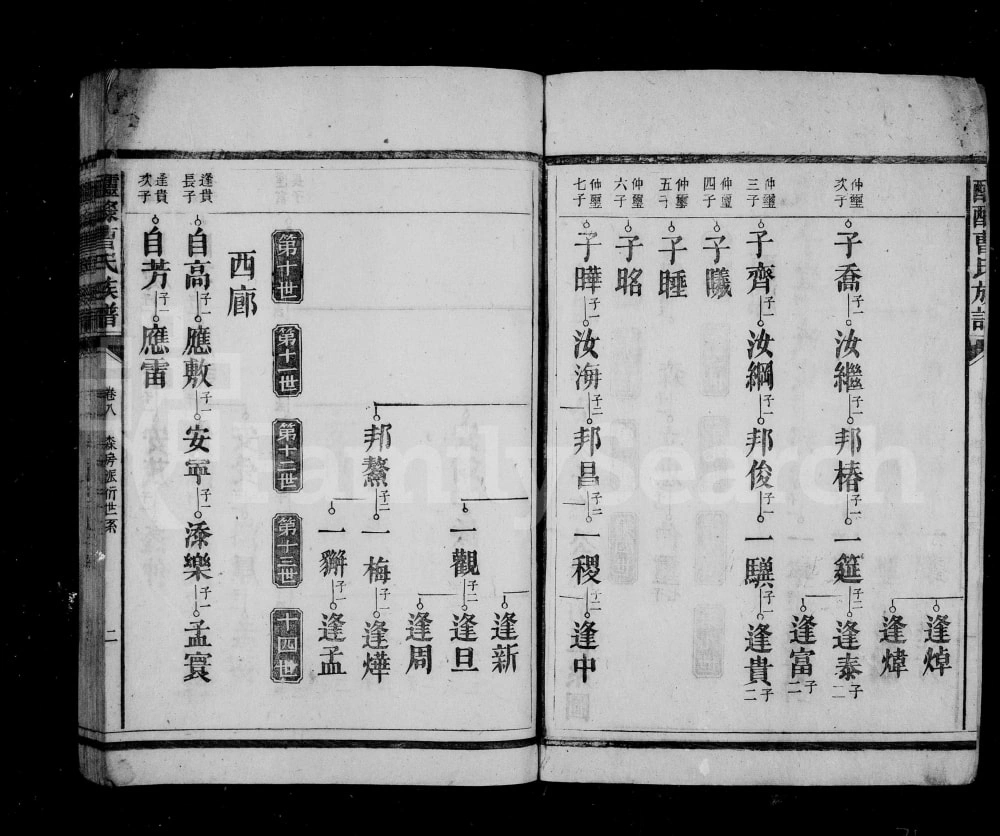 逢焯
逢煒
仲璽次子
子喬 子一 汝繼 子一 邦椿 子一 一筵 子二 逢泰 子二
逢富 子二
仲璽三子
子齊 子一 汝綱 子一 邦俊 子一 一驥 子一 逢貴 子二
仲璽四子
子曦
仲璽五子
子睡
仲璽六子
子昭
仲璽七子
子曄 子一 汝海 子二 邦昌 子二 一稷 子二 逢中
逢新
一觀 子二 逢旦
逢周
邦鰲 子二 一梅 子一 逢燁
一獬 子一 逢孟
第十世 第十一世 第十二世 第十三世 十四世
西廊
逢貴長子
自高 子一 應敷 子一 安寧 子一 添樂 子一 孟寰
逢貴次子
自芳 子一 應雷
曹氏族譜
卷八
衍世系
二
FamilySearch